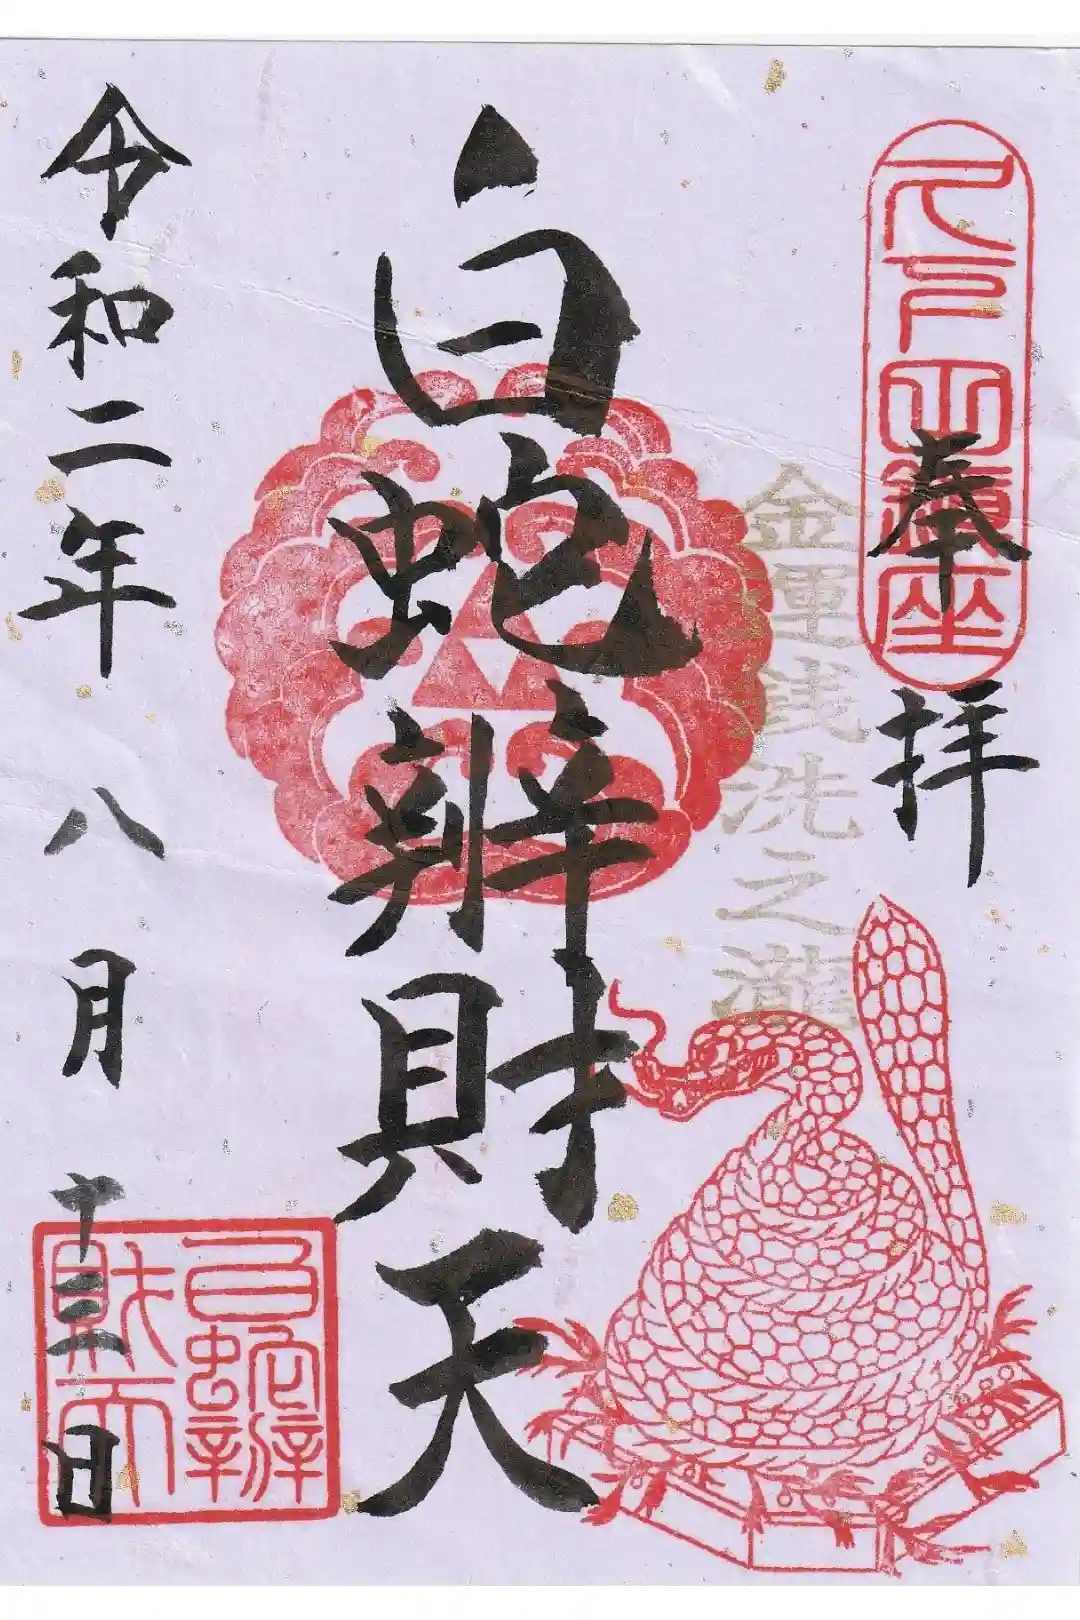 奉拝
金運銭洗之瀧
白蛇辨財天
令和二年八月十三日
白蛇辨
財天